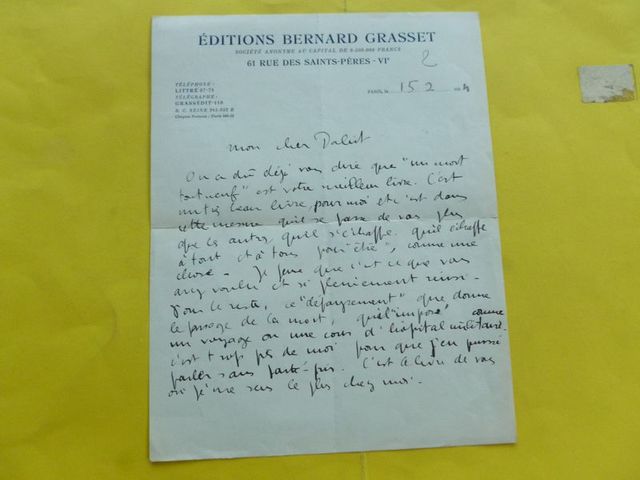 ÉDITIONS BERNARD GRASSET
SOCIÉTÉ ANONYME AU CAPITAL DE FRANCS
61 RUE DES SAINTS-PÈRES - VIe
2
TÉLÉPHONE:
LITTRÉ
TÉLÉGRAPHE:
GRASSÉDIT-110
R. C. SEINE
PARIS, le 15 2
mon cher Dabit
On a dû déjà vous dire que "un mort
tout neuf" est votre meilleur livre. C'est
un très beau livre, pour moi et c'est dans
cette mesure qu'il se passe de vous plus
que les autres, qu'il s'échappe. qu'il échappe
à tout et à tous comme une
chose - Je pense que c'est ce que vous
avez voulu et si pleinement réussi -
Pour le reste, ce que donne
le passage de la mort, qu'il impose, comme
un voyage ou une cour d'hôpital militaire.
c'est trop près de moi pour que j'en puisse
parler sans parti-pris. C'est le livre de vous
où je me sens le plus chez moi.